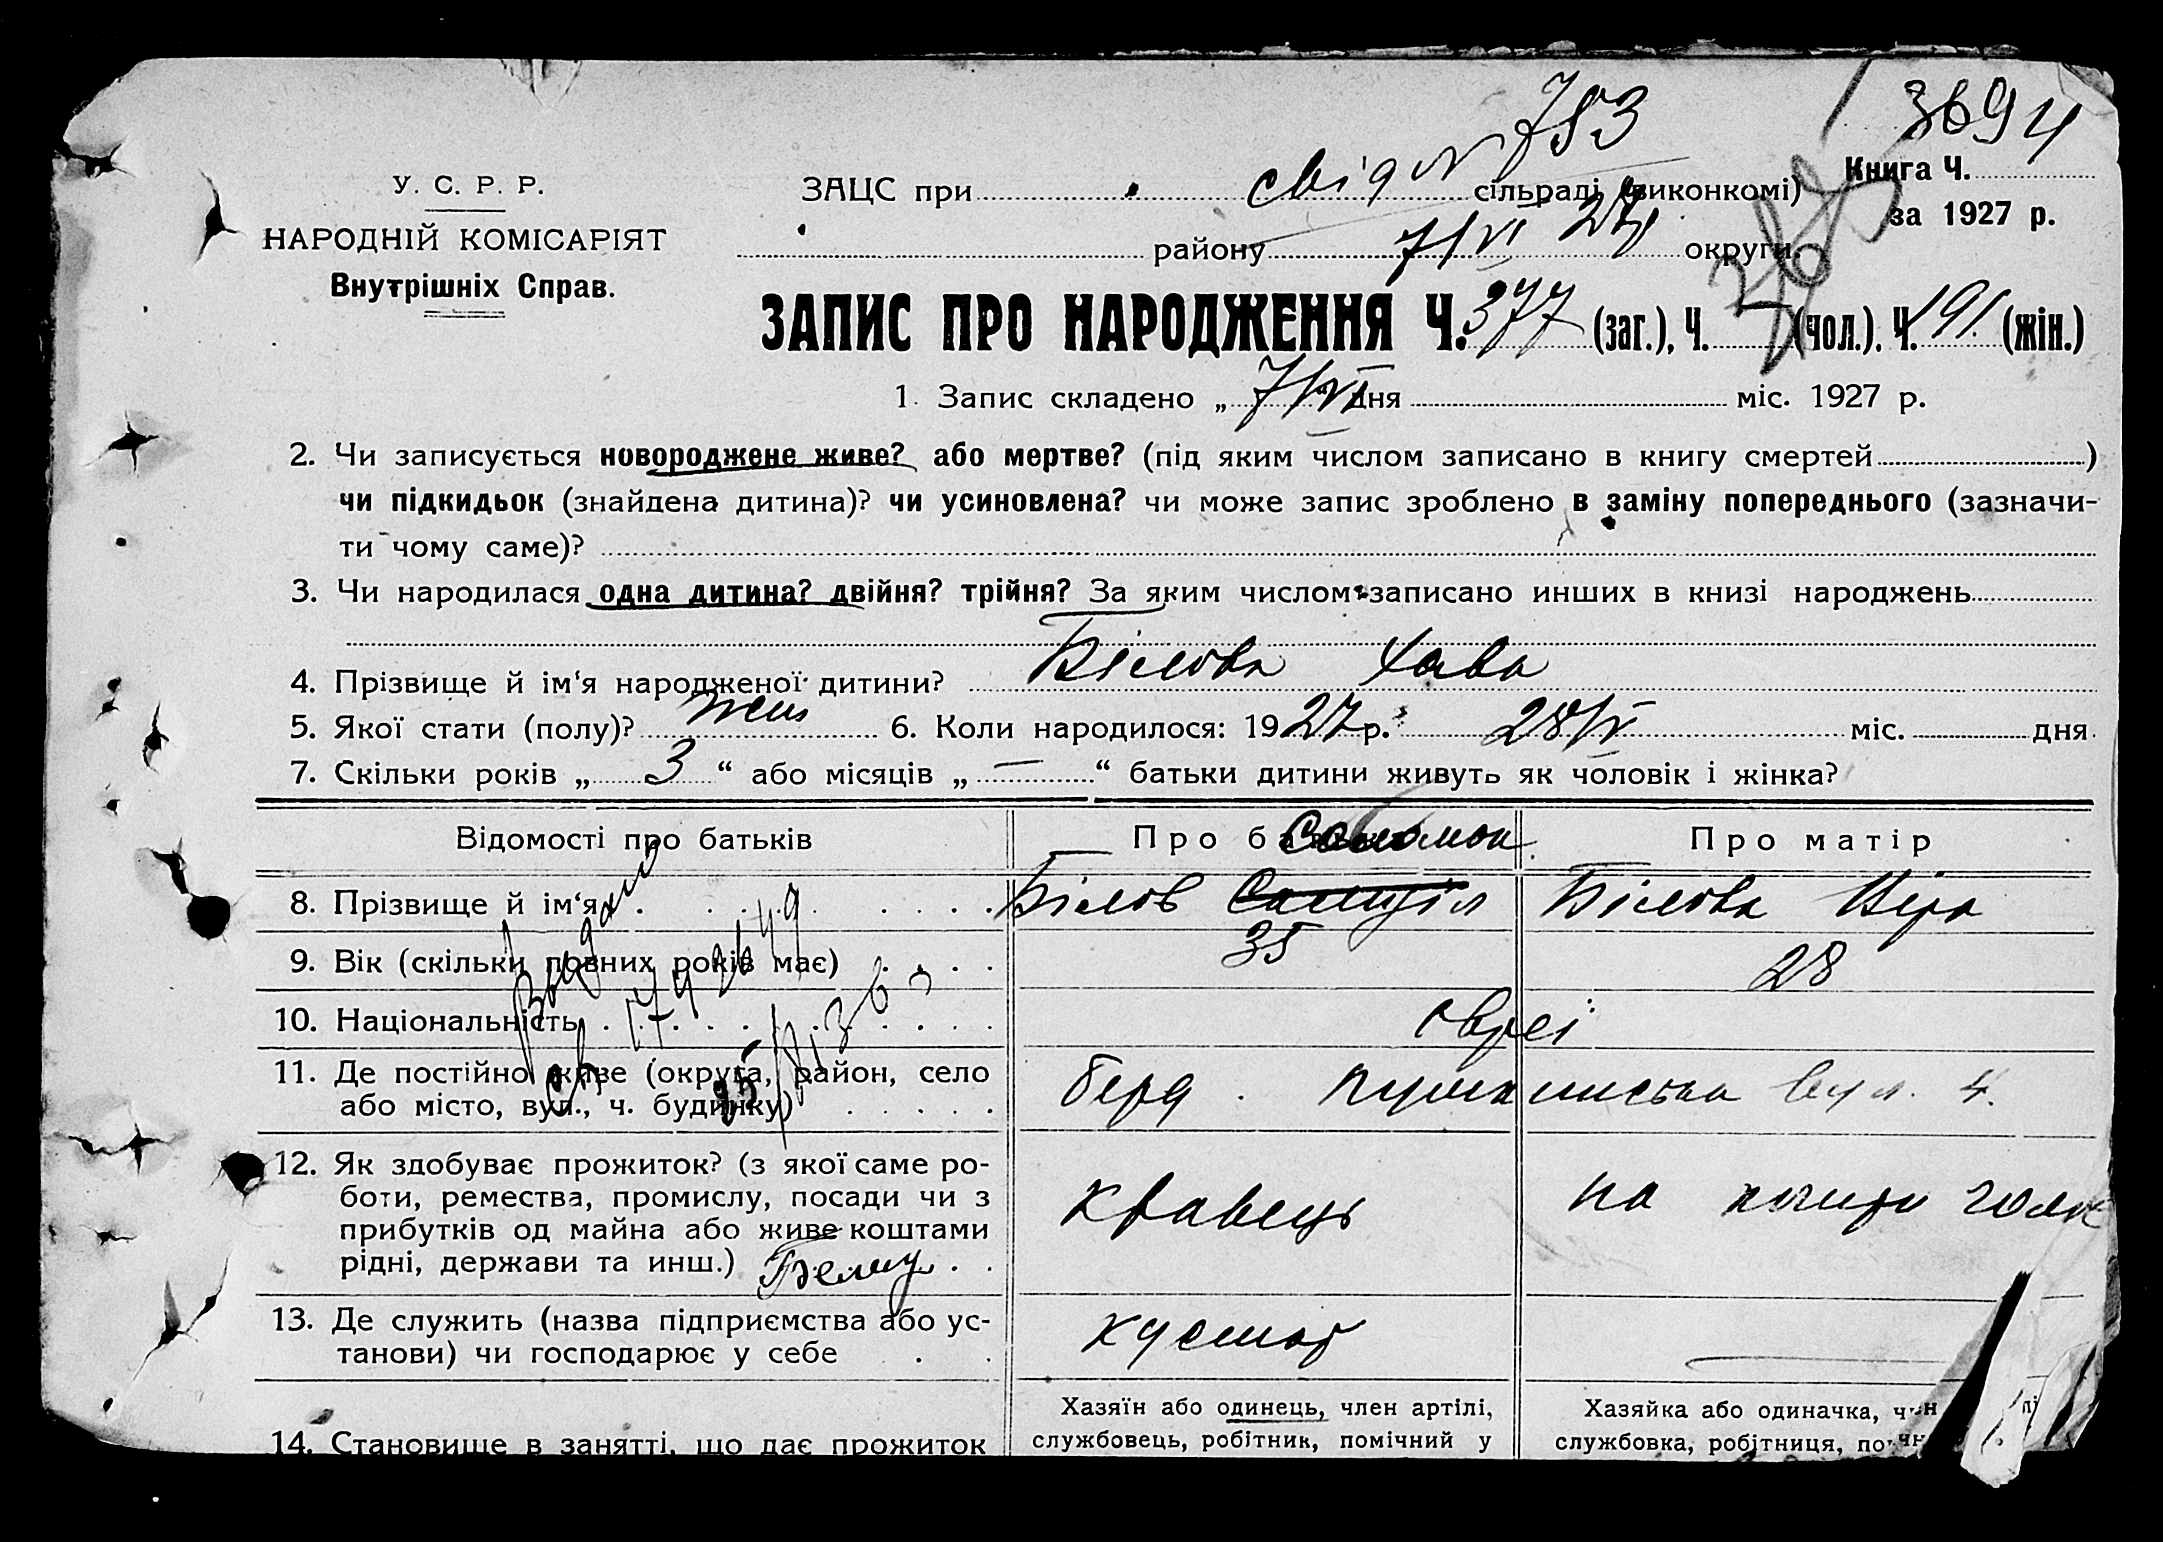 3694
свід № 783
У. С. Р. Р.
НАРОДНІЙ КОМІСАРІЯТ
Внутрішніх Справ.
ЗАЦС при сільраді (виконкомі)
Книга Ч.
за 1927 р.
району 7/VI 27 округи
ЗАПИС ПРО НАРОДЖЕННЯ Ч. 377 (заг.), Ч. (чол.). Ч. 191. (жін.)
1. Запис складено „ 7/VI “ дня міс. 1927 р.
2. Чи записується новороджене живе? або мертве? (під яким числом записано в книгу смертей )
чи підкидьок (знайдена дитина)? чи усиновлена? чи може запис зроблено в заміну попереднього (зазначи-
ти чому саме)?
3. Чи народилася одна дитина? двійня? трійня? За яким числом записано инших в книзі народжень
4. Прізвище й ім'я народженої дитини? Білова Хава
5. Якої стати (полу)? жін 6. Коли народилося: 1927 р. 28/IV міс. дня
7. Скільки років „ 3 “ або місяців „ — “ батьки дитини живуть як чоловік і жінка?
Відомості про батьків Про батька Про матір
Соломон
8. Прізвище й ім'я Білов Самуїл Білова Віра
9. Вік (скільки повних років має) 35 28
10. Національність євреї
11. Де постійно живе (округа, район, село
або місто, вул., ч. будинку) Берд. Пушкинська вул. 4.
12. Як здобуває прожиток? (з якої саме ро-
боти, ремества, промислу, посади чи з
прибутків од майна або живе коштами
рідні, держави та инш.) кравець на кошти чолов
13. Де служить (назва підприємства або ус-
танови) чи господарює у себе кустар
Хазяїн або одинець, член артілі, Хазяйка або одиначка,
14. Становище в занятті, що дає прожиток службовець, робітник, помічний у службовка, робітниця,